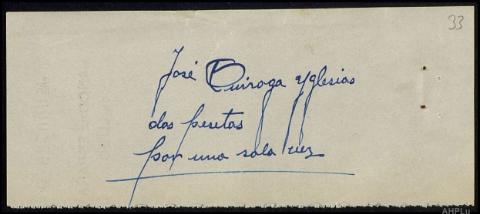 33
José Quiroga Yglesias
dos pesetas
por una sola vez
AHPLu